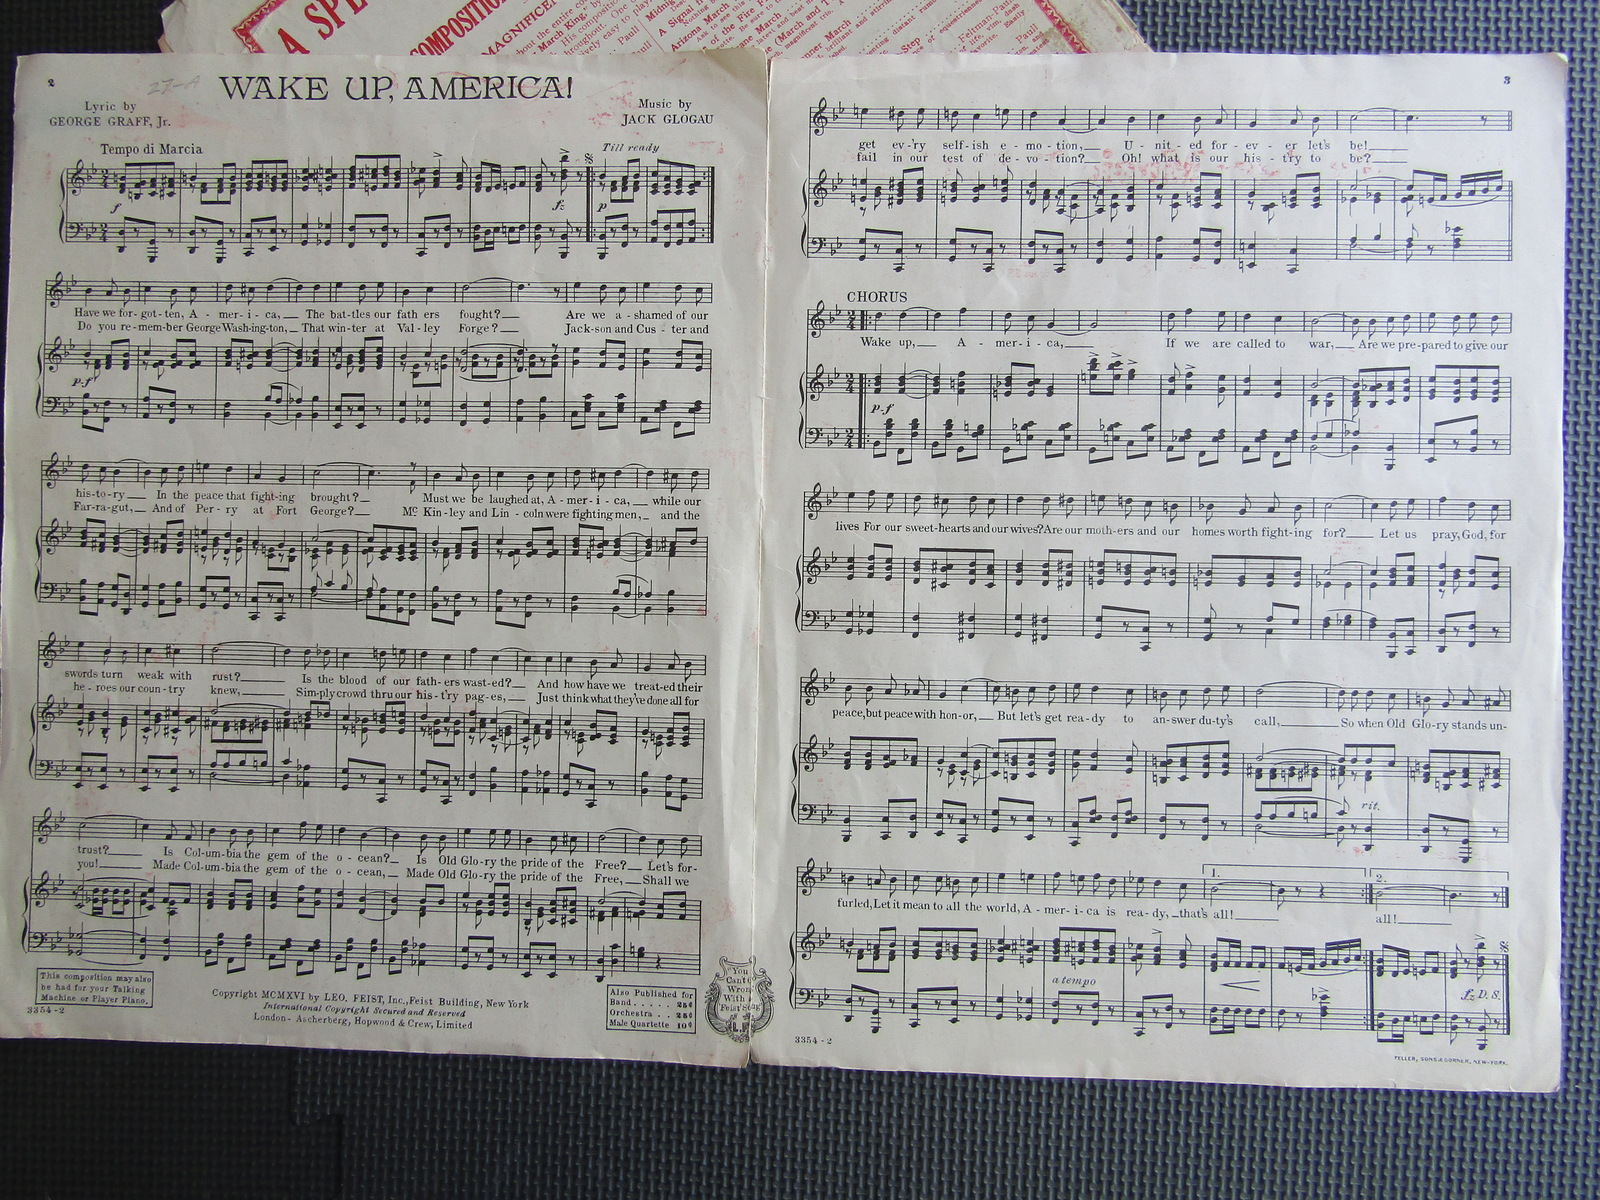 A SPE
COMPOSITION
MAGNIFICEN
March King, by
His composition
Pauli
2
27-A
WAKE UP, AMERICA!
Lyric by
GEORGE GRAFF, Jr.
Music by
JACK GLOGAU
Tempo di Marcia
Till ready
f
fz
p
Have we for-got-ten, A - mer - i - ca,— The bat-tles our fath ers fought?— Are we a - shamed of our
Do you re-mem-ber George Wash-ing-ton,— That win-ter at Val - ley Forge?— Jack-son and Cus - ter and
p-f
his-to-ry— In the peace that fight-ing brought?— Must we be laughed at, A - mer - i - ca,— while our
Far-ra-gut,— And of Per - ry at Fort George?— Mc Kin-ley and Lin - coln were fighting men,— and the
swords turn weak with rust?— Is the blood of our fath-ers wast-ed?— And how have we treat-ed their
he - roes our coun - try knew,— Sim-ply crowd thru our his - t'ry pag - es,— Just think what they've done all for
trust?— Is Col-um-bia the gem of the o - cean?— Is Old Glo-ry the pride of the Free?— Let's for-
you!— Made Col-um-bia the gem of the o - cean,— Made Old Glo-ry the pride of the Free,— Shall we
This composition may also
be had for your Talking
Machine or Player Piano.
Copyright MCMXVI by LEO. FEIST, Inc., Feist Building, New York
International Copyright Secured and Reserved
London - Ascherberg, Hopwood & Crew, Limited
Also Published for
Band . . . . . 25¢
Orchestra . . 25¢
Male Quartette 10¢
"You
Can't Go
Wrong
With a
Feist Song"
3354 - 2
3
get ev-'ry self-ish e - mo - tion,— U - nit - ed for - ev - er let's be!—
fail in our test of de - vo - tion?— Oh! what is our his - t'ry to be?—
CHORUS
Wake up,— A - mer - i - ca,— If we are called to war,— Are we pre-pared to give our
p-f
lives For our sweet-hearts and our wives? Are our moth-ers and our homes worth fight-ing for?— Let us pray, God, for
peace, but peace with hon-or,— But let's get rea-dy to an-swer du-ty's call,— So when Old Glo-ry stands un-
rit.
1.
2.
furled, Let it mean to all the world, A - mer - i - ca is rea - dy,—that's all!— all!—
a tempo
fz D.S.
3354 - 2
TELLER, SONS & DORNER, NEW-YORK.